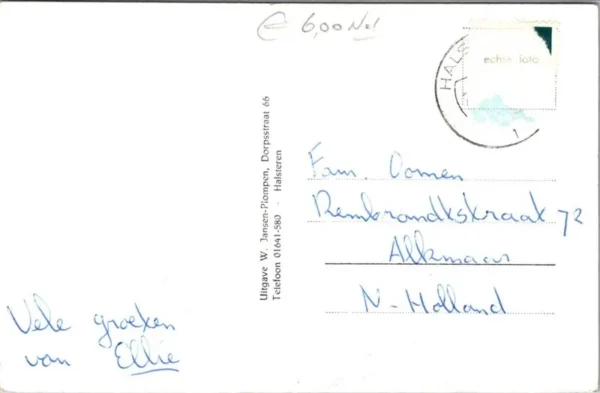 € 6,00 Ned
HALS
echte foto
1
Uitgave W. Jansen-Plompen, Dorpsstraat 66
Telefoon 01641-580 - Halsteren
Fam. Oomen
Rembrandtstraat 72
Alkmaar
N-Holland
Vele groeten
van Ellie